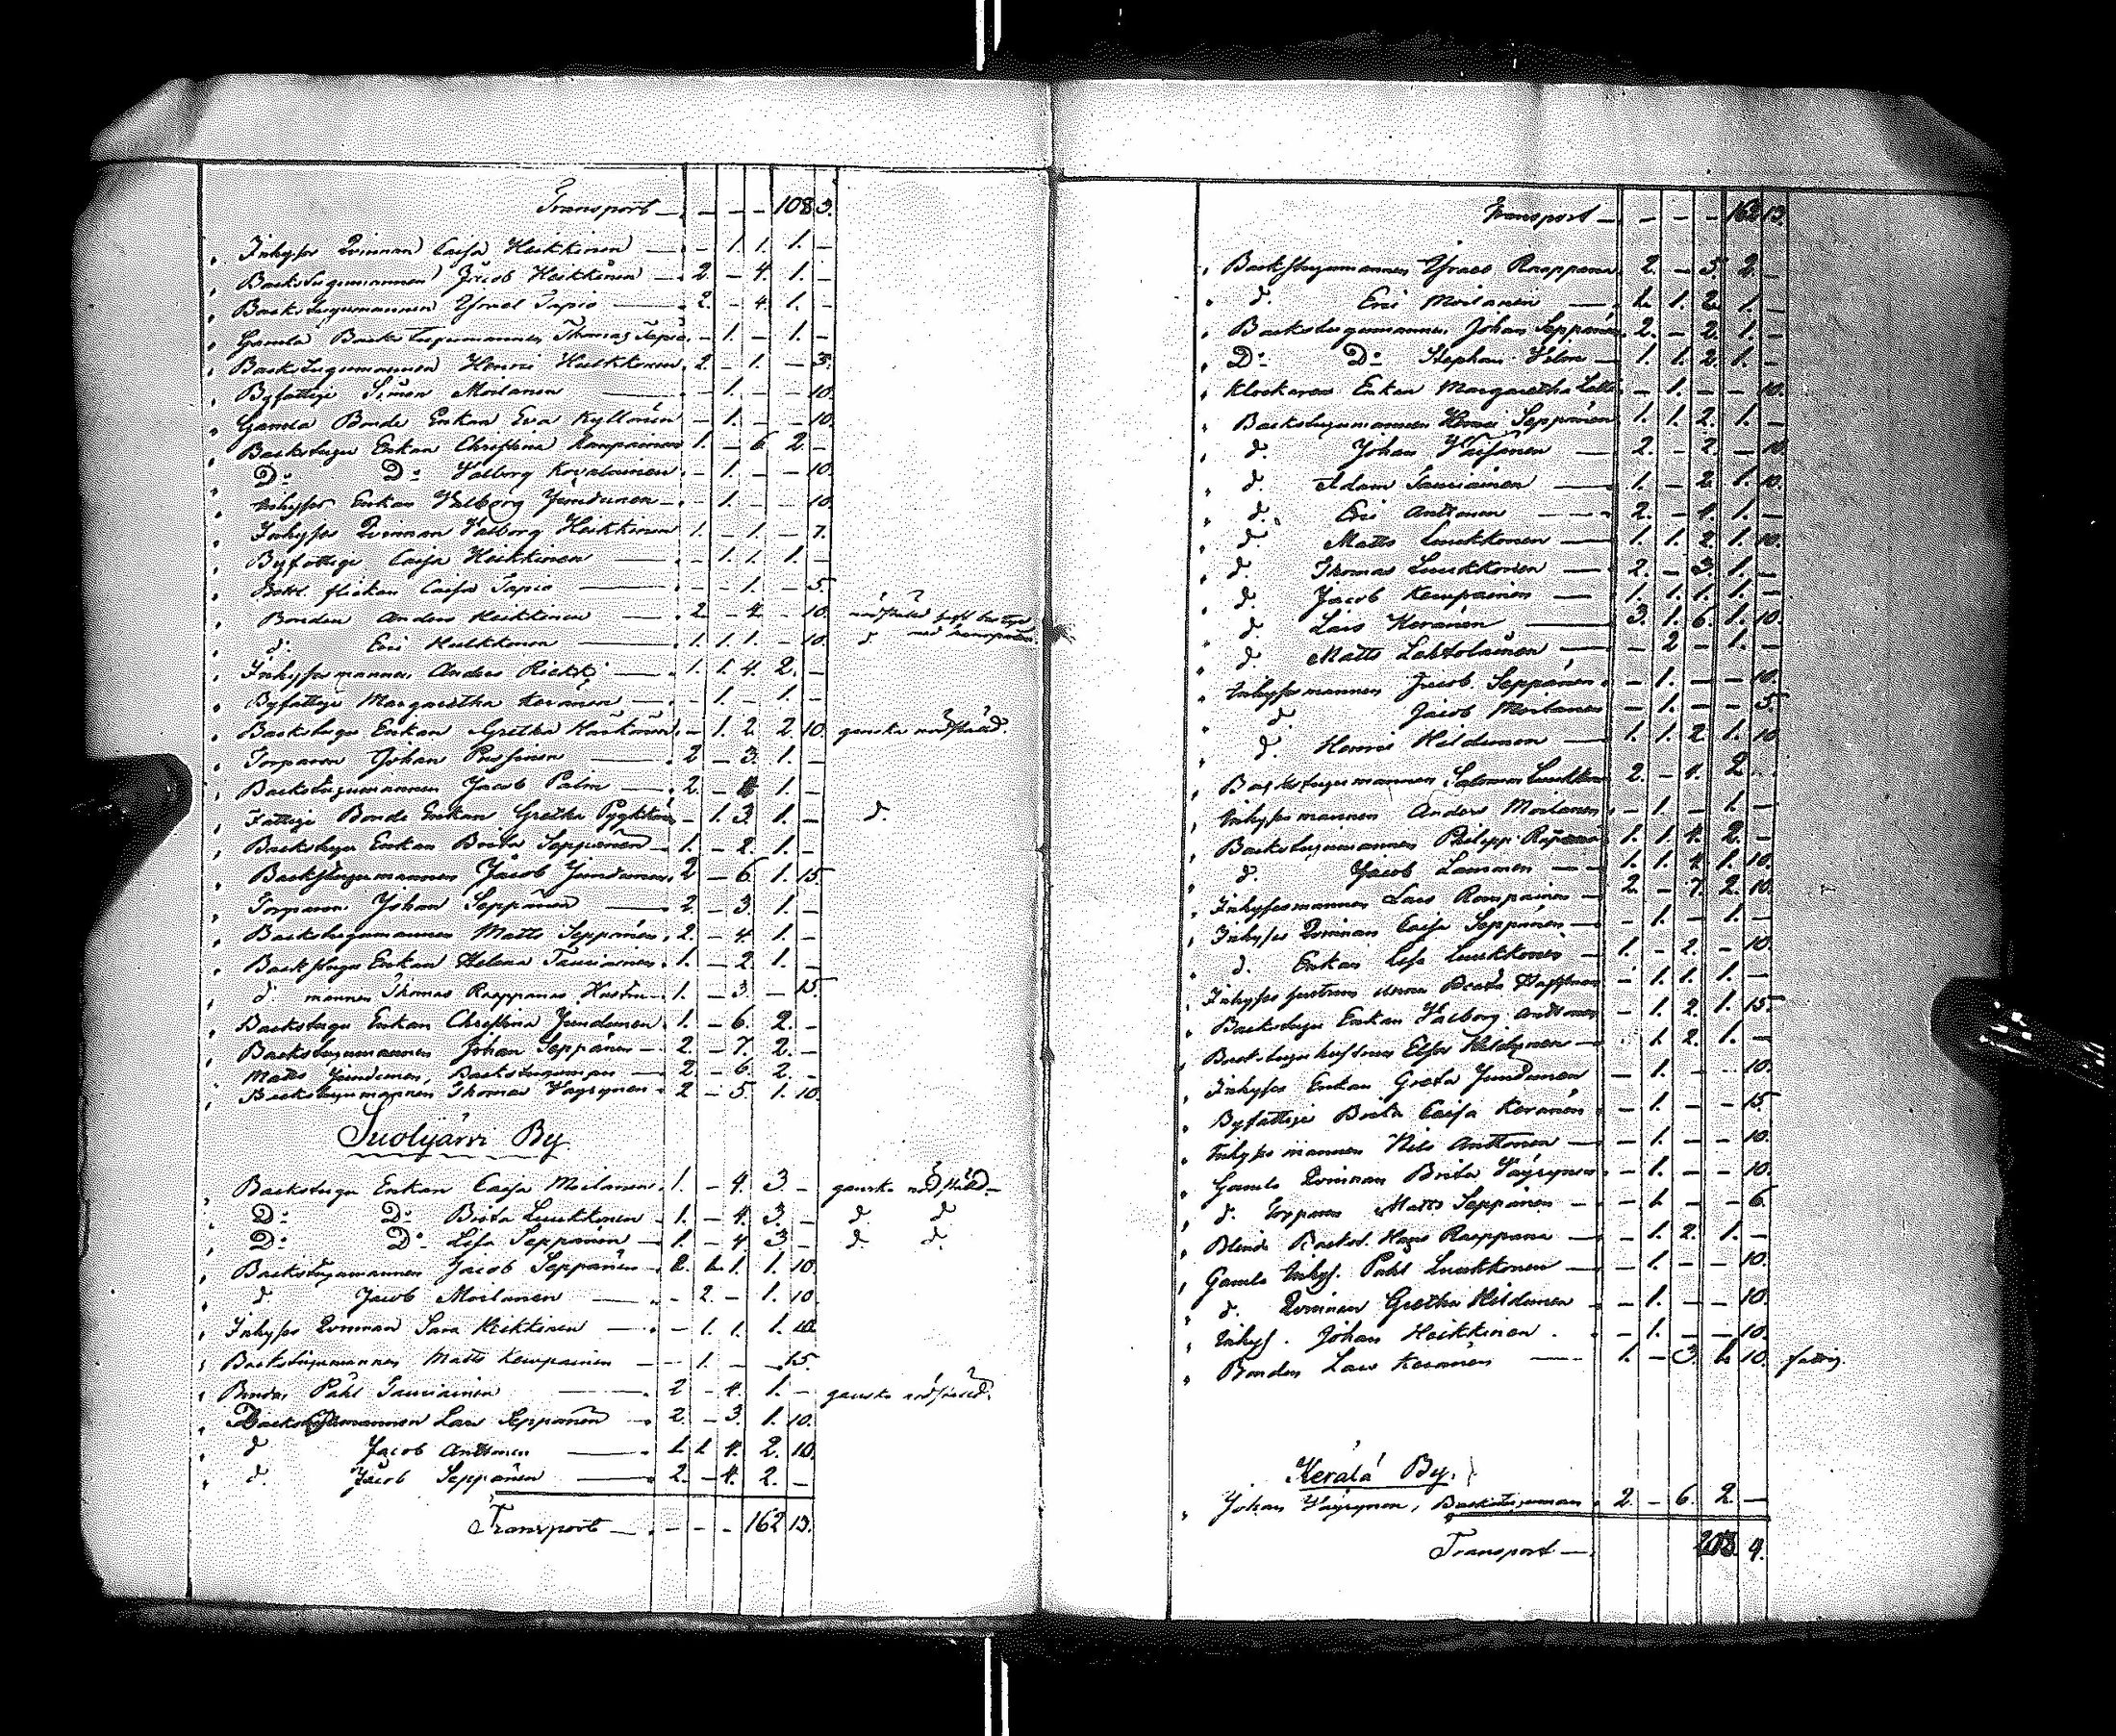 Transport — - - - 108 3.
Inhyses Qvinnan Caisa Heikkinen — - 1. 1. 1. -
Backstugumannen Jacob Heikkinen — 2. - 4. 1. -
Backstugumannen Ysrael Tapio — 2. - 4. 1. -
Gamla Backstugumannen Thomas Tapio - 1. - 1. -
Backstugumannen Henric Heikkonen 2. - 1. - 5.
Byfattige Simon Moilanen - 1. - - 10.
Gamla Bonde Enkan Eva Kyllönen - 1. - - 10.
Backstugu Enkan Christina Kempainen 1. - 6 2. -
D:o D:o Valborg Kovalainen - 1. - - 10.
Inhyses Enkan Valborg Jundunen - 1. - - 10.
Inhyses Qvinnan Valborg Heikkinen 1. - 1. - 7.
Byfattige Caisa Heikkinen — - 1. 1. 1. -
flickan Caisa Tapio — - - 1. - 5.
Bonden Anders Heikkinen — 2. - 4. - 10. nödställd
d: Eric Heikkonen — 1. 1. 1. - 10. d
Inhysesmannen Anders Riekki — 1. 1. 4. 2. -
Byfattige Margaretha Keränen — - 1. - 1. -
Backstugu Enkan Gretha Härkönen - 1. 2. 2. 10. ganska nödställd.
Torparen Johan Pussinen — 2 - 3. 1. -
Backstugumannen Jacob Palm — 2. - 4 1. -
Fattige Bonde Enkan Gretha Pyykkönen - 1. 3. 1. - d.
Backstugu Enkan Brita Seppänen — 1. - 2. 1. -
Backstugumannen Jacob Jundunen 2 - 6. 1. 15.
Torparen Johan Seppänen — 2. - 3. 1. -
Backstugumannen Matts Seppänen 2. - 4. 1. -
Backstugu Enkan Helena Tauriainen 1. - 2. 1. -
d: mannen Thomas Raappanas Hustru 1. - 3. - 15.
Backstugu Enkan Christina Jundunen 1. - 6. 2. -
Backstugumannen Johan Seppänen — 2 - 7. 2. -
Matts Jundunen, Backstuguman — 2 - 6. 2. -
Backstugumannen Thomas Väyrynen 2 - 5. 1. 10.
Suolijärvi By
Backstugu Enkan Caisa Moilanen 1. - 4. 3 - ganska nödställd
D:o D:o Brita Luukkonen 1. - 4. 3. - d. d.
D:o D:o Lisa Seppänen — 1. - 4 3 - d. d.
Backstugumannen Jacob Seppänen 2. 1. 1. 1. 10.
d. Jacob Moilanen — - 2. - 1. 10
Inhyses Qvinnan Sara Heikkinen — - 1. 1. 1. 10.
Backstugumannen Matts Kempainen - 1. - - 15.
Bonden Påhl Tauriainen — 2 - 4. 1. - ganska nödställd.
Backstugumannen Lars Seppänen 2. - 3. 1. 10.
d Jacob Anttonen — 1. 1. 4. 2. 10.
d. Jacob Seppänen — 2. - 4. 2. -
Transport — - - - 162 13.
Transport — - - - 162 13.
Backstugumannen Ysrael Raappana 2. - 5. 2. -
d. Eric Moilanen — 1. 1. 2. 1. -
Backstugumannen Johan Seppänen 2. - 2. 1. -
D:o D:o Stephan — 1. 1. 2. 1. -
Klockaren Enkan Margaretha - 1. - - 10.
Backstugumannen Henric Seppänen 1. 1. 2. 1. -
d. Johan Väisänen — 2. - 2. - 10
d. Adam Tauriainen — 1. - 2. 1. 10.
d. Eric Anttonen — 2. - 4. 1. -
d. Matts Luukkonen — 1. 1. 2. 1. 10.
d. Thomas Luukkonen — 2. - 3. 1. -
d. Jacob Kempainen — 1. 1. 1. 1. -
d. Lars Keränen — 3. 1. 6. 1. 10.
d. Matts Lahtolainen — - 2 - 1. -
Inhysesmannen Jacob Seppänen - 1. - - 10.
d. Jacob Moilanen - 1. - - 5.
d. Henric Heldunen — 1. 1. 2 1. 10
Backstugumannen Salomon Luukkonen 2. - 4. 2
Inhysesmannen Anders Moilanen - 1. - 1. -
Backstugumannen Philipp 1. 1. 4. 2. -
d. Jacob Launonen — 1. 1. 4. 1. 10.
Inhysesmannen Lars Kempainen 2. - 7. 2. 10
Inhyses Qvinnan Caisa Seppänen - 1. - 1. -
d. Enkan Lisa Luukkonen 1. - 2. - 10.
Inhyses hustrun Beata - 1. 1. 1. -
Backstugu Enkan Valborg Anttonen - 1. 2. 1. 15.
Backstugu hustrun Heldunen - 1. 2. 1. -
Inhyses Enkan Greta Jundunen - 1. - - 10.
Byfattige Brita Caisa Keränen - 1. - - 15.
Inhysesmannen Nils Anttonen - 1. - - 10.
Gamla Qvinnan Brita Väyrynen - 1. - - 10.
d. Torparen Matts Seppänen - 1. - - 6.
Blinde Backst. Hans Raappana - 1. 2. 1. -
Gamle Inhys. Påhl Luukkonen - 1. - - 10.
d. Qvinnan Gretha Heldunen - 1. - - 10.
Inhys. Johan Heikkinen - 1. - - 10.
Bonden Lars Keränen — 1. - 3. 1. 10. fattig.
Kerälä By.
Johan Väyrynen, Backstuguman 2. - 6. 2. -
Transport — 208 4.